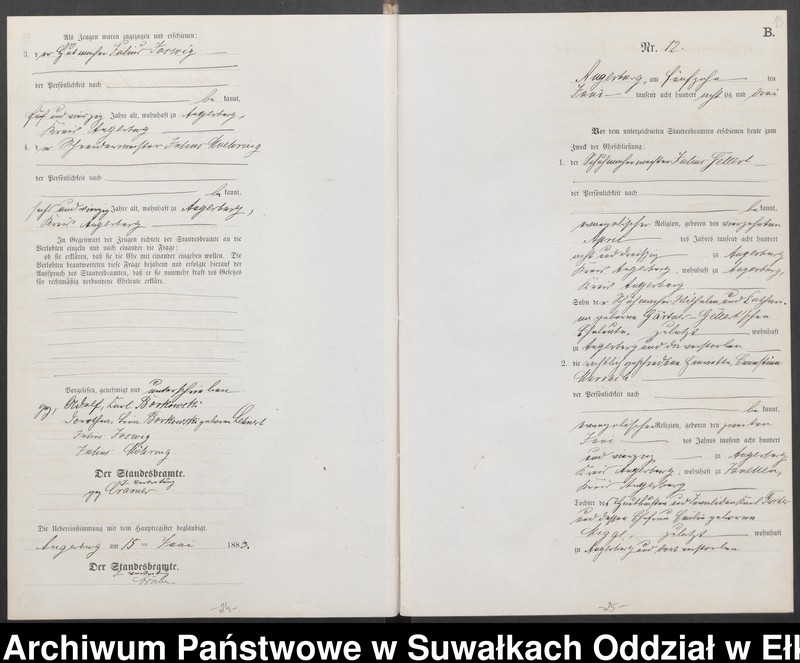 Als Zeugen waren zugezogen und erschienen:
3. der Hutmacher Julius Jorwig
der Persönlichkeit nach
be kannt,
fünf und vierzig Jahre alt, wohnhaft zu Angerburg,
Kreis Angerburg
4. der Schneidermeister Julius
der Persönlichkeit nach
be kannt,
sechs und vierzig Jahre alt, wohnhaft zu Angerburg,
Kreis Angerburg
In Gegenwart der Zeugen richtete der Standesbeamte an die
Verlobten einzeln und nach einander die Frage:
ob sie erklären, daß sie die Ehe mit einander eingehen wollen. Die
Verlobten beantworteten diese Frage bejahend und erfolgte hierauf der
Ausspruch des Standesbeamten, daß er sie nunmehr kraft des Gesetzes
für rechtmäßig verbundene Eheleute erkläre.
Vorgelesen, genehmigt und unterschrieben
gez. Adolf, Karl Borkowski
Dorothea, Borkowski geborene Lehnert
Julius Jorwig
Julius
Der Standesbeamte.
In Vertretung
gez Cramer
Die Uebereinstimmung mit dem Hauptregister beglaubigt.
Angerburg am 15 ten Juni 1883.
Der Standesbeamte.
In Vertretung
Cramer
-24-
B.
Nr. 12.
Angerburg, am fünfzehn ten
Juni tausend acht hundert acht zig und drei
Vor dem unterzeichneten Standesbeamten erschienen heute zum
Zweck der Eheschließung:
1. der Schuhmachermeister Julius Gellert
der Persönlichkeit nach
be kannt,
evangelischer Religion, geboren den vierzehnten
April des Jahres tausend acht hundert
und dreißig zu Angerburg
Kreis Angerburg, wohnhaft zu Angerburg,
Kreis Angerburg
Sohn der Schuhmacher Wilhelm und
geborene Gärtner- Gellert'schen
Eheleute, zuletzt wohnhaft
zu Angerburg und da verstorben
2. die geschiedene Henriette, Ernestine
der Persönlichkeit nach
be kannt,
evangelischer Religion, geboren den zweiten
Juni des Jahres tausend acht hundert
und vierzig zu Angerburg
Kreis Angerburg, wohnhaft zu
Kreis Angerburg
Tochter des und Invaliden Karl
und dessen Ehefrau geborene
zuletzt wohnhaft
zu Angerburg und dort verstorben
-25-
Archiwum Państwowe w Suwałkach Oddział w Ełk